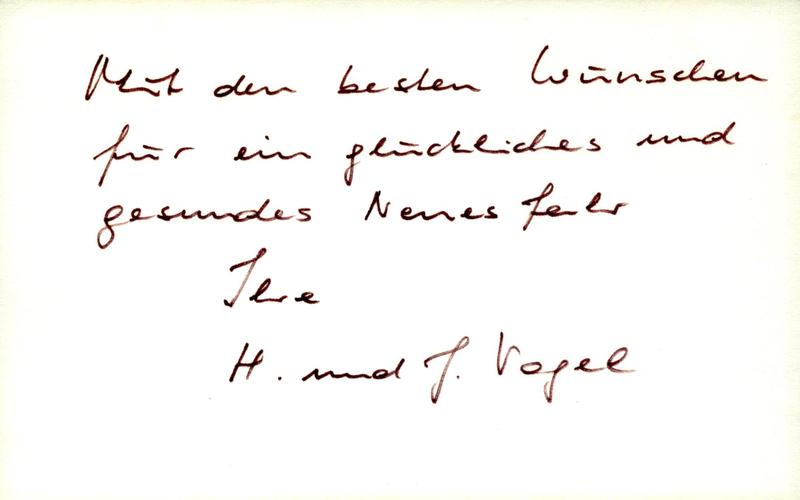 Mit den besten Wünschen
für ein glückliches und
gesundes Neues Jahr
Ihre
H. und J. Vogel